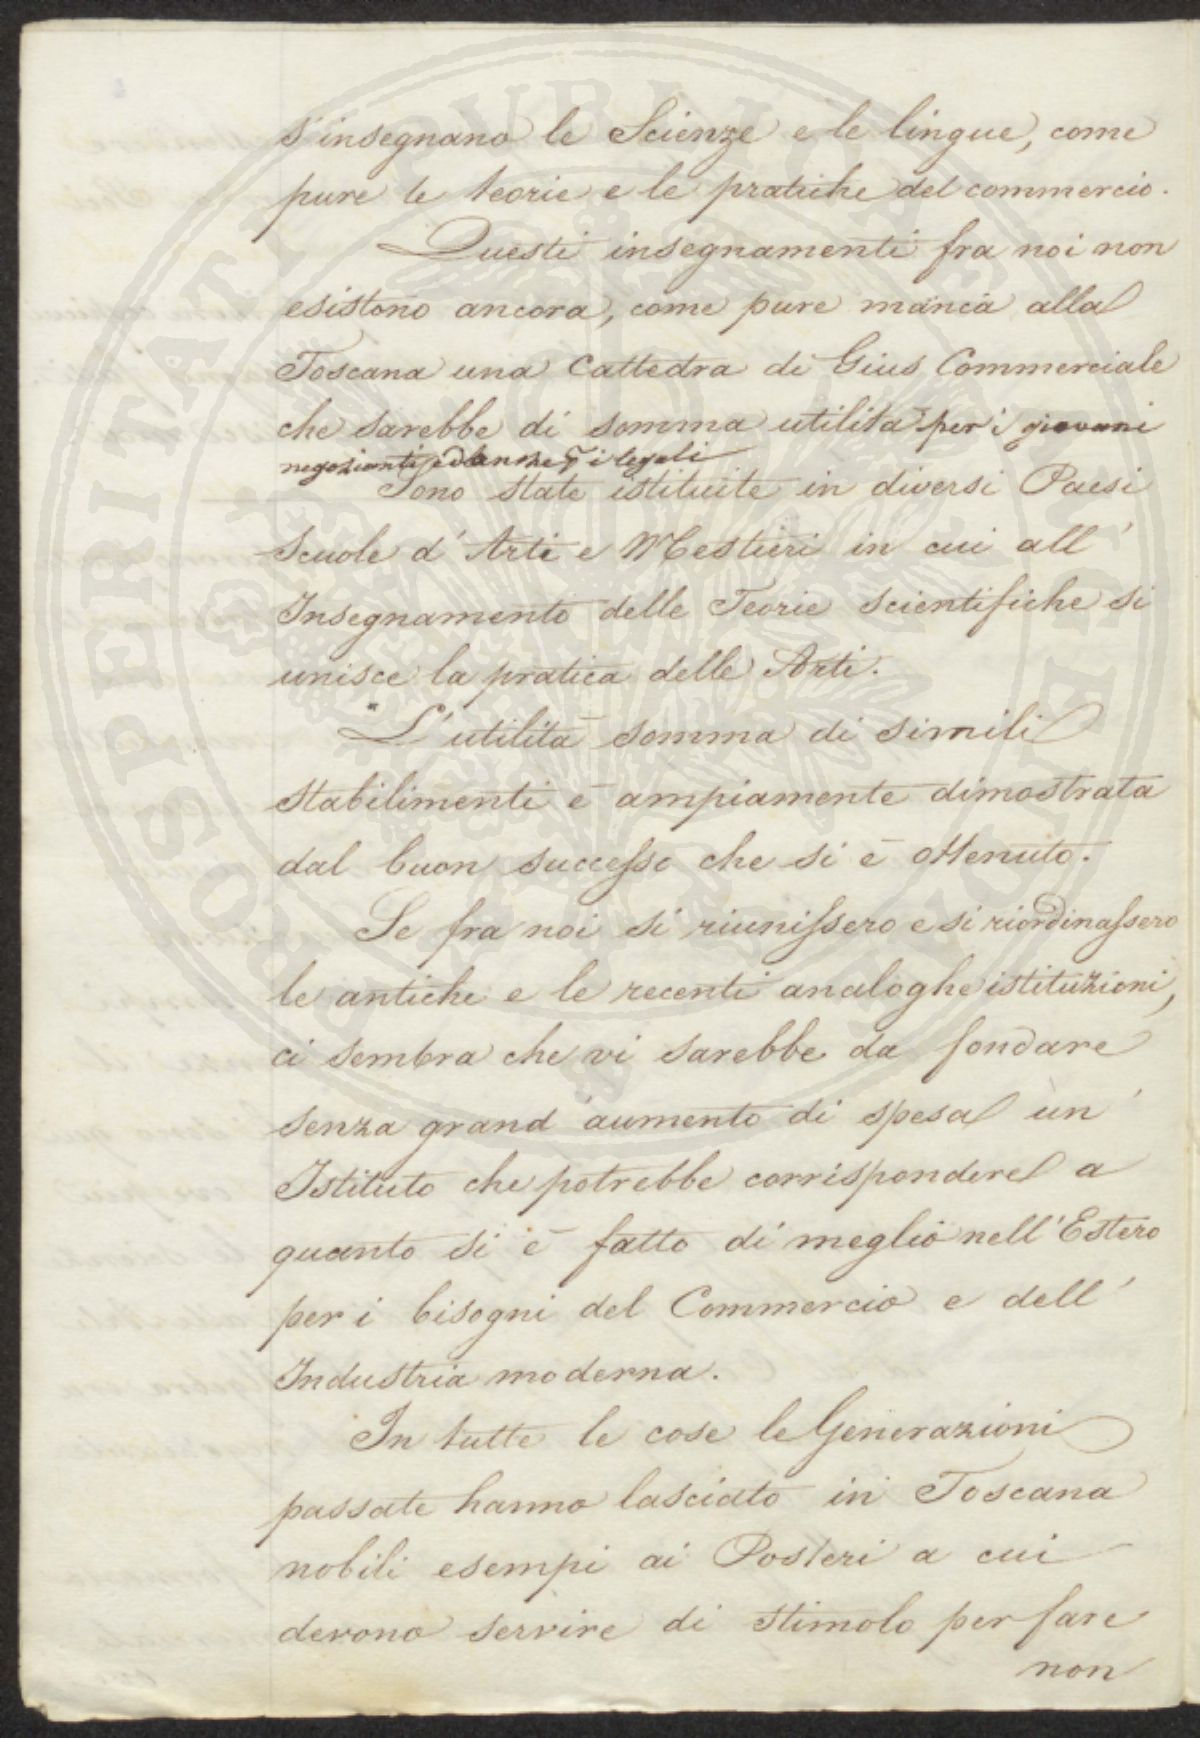 s'insegnano le Scienze e le lingue, come
pure le teorie e le pratiche del commercio.
Questi insegnamenti fra noi non
esistono ancora, come pure manca alla
Toscana una Cattedra di Gius Commerciale
che sarebbe di somma utilità per i giovani
negozianti ed anche p i legali
Sono state istituite in diversi Paesi
Scuole d'Arti e Mestieri in cui all'
Insegnamento delle Teorie scientifiche si
unisce la pratica delle Arti.
L'utilità somma di simili
Stabilimenti è ampiamente dimostrata
dal buon successo che si è ottenuto.
Se fra noi si riunissero e si riordinassero
le antiche e le recenti analoghe istituzioni,
ci sembra che vi sarebbe da fondare
senza grand'aumento di spesa un'
Istituto che potrebbe corrispondere a
quanto si è fatto di meglio nell'Estero
per i bisogni del Commercio e dell'
Industria moderna.
In tutte le cose le Generazioni
passate hanno lasciato in Toscana
nobili esempi ai Posteri a cui
devono servire di stimolo per fare
non